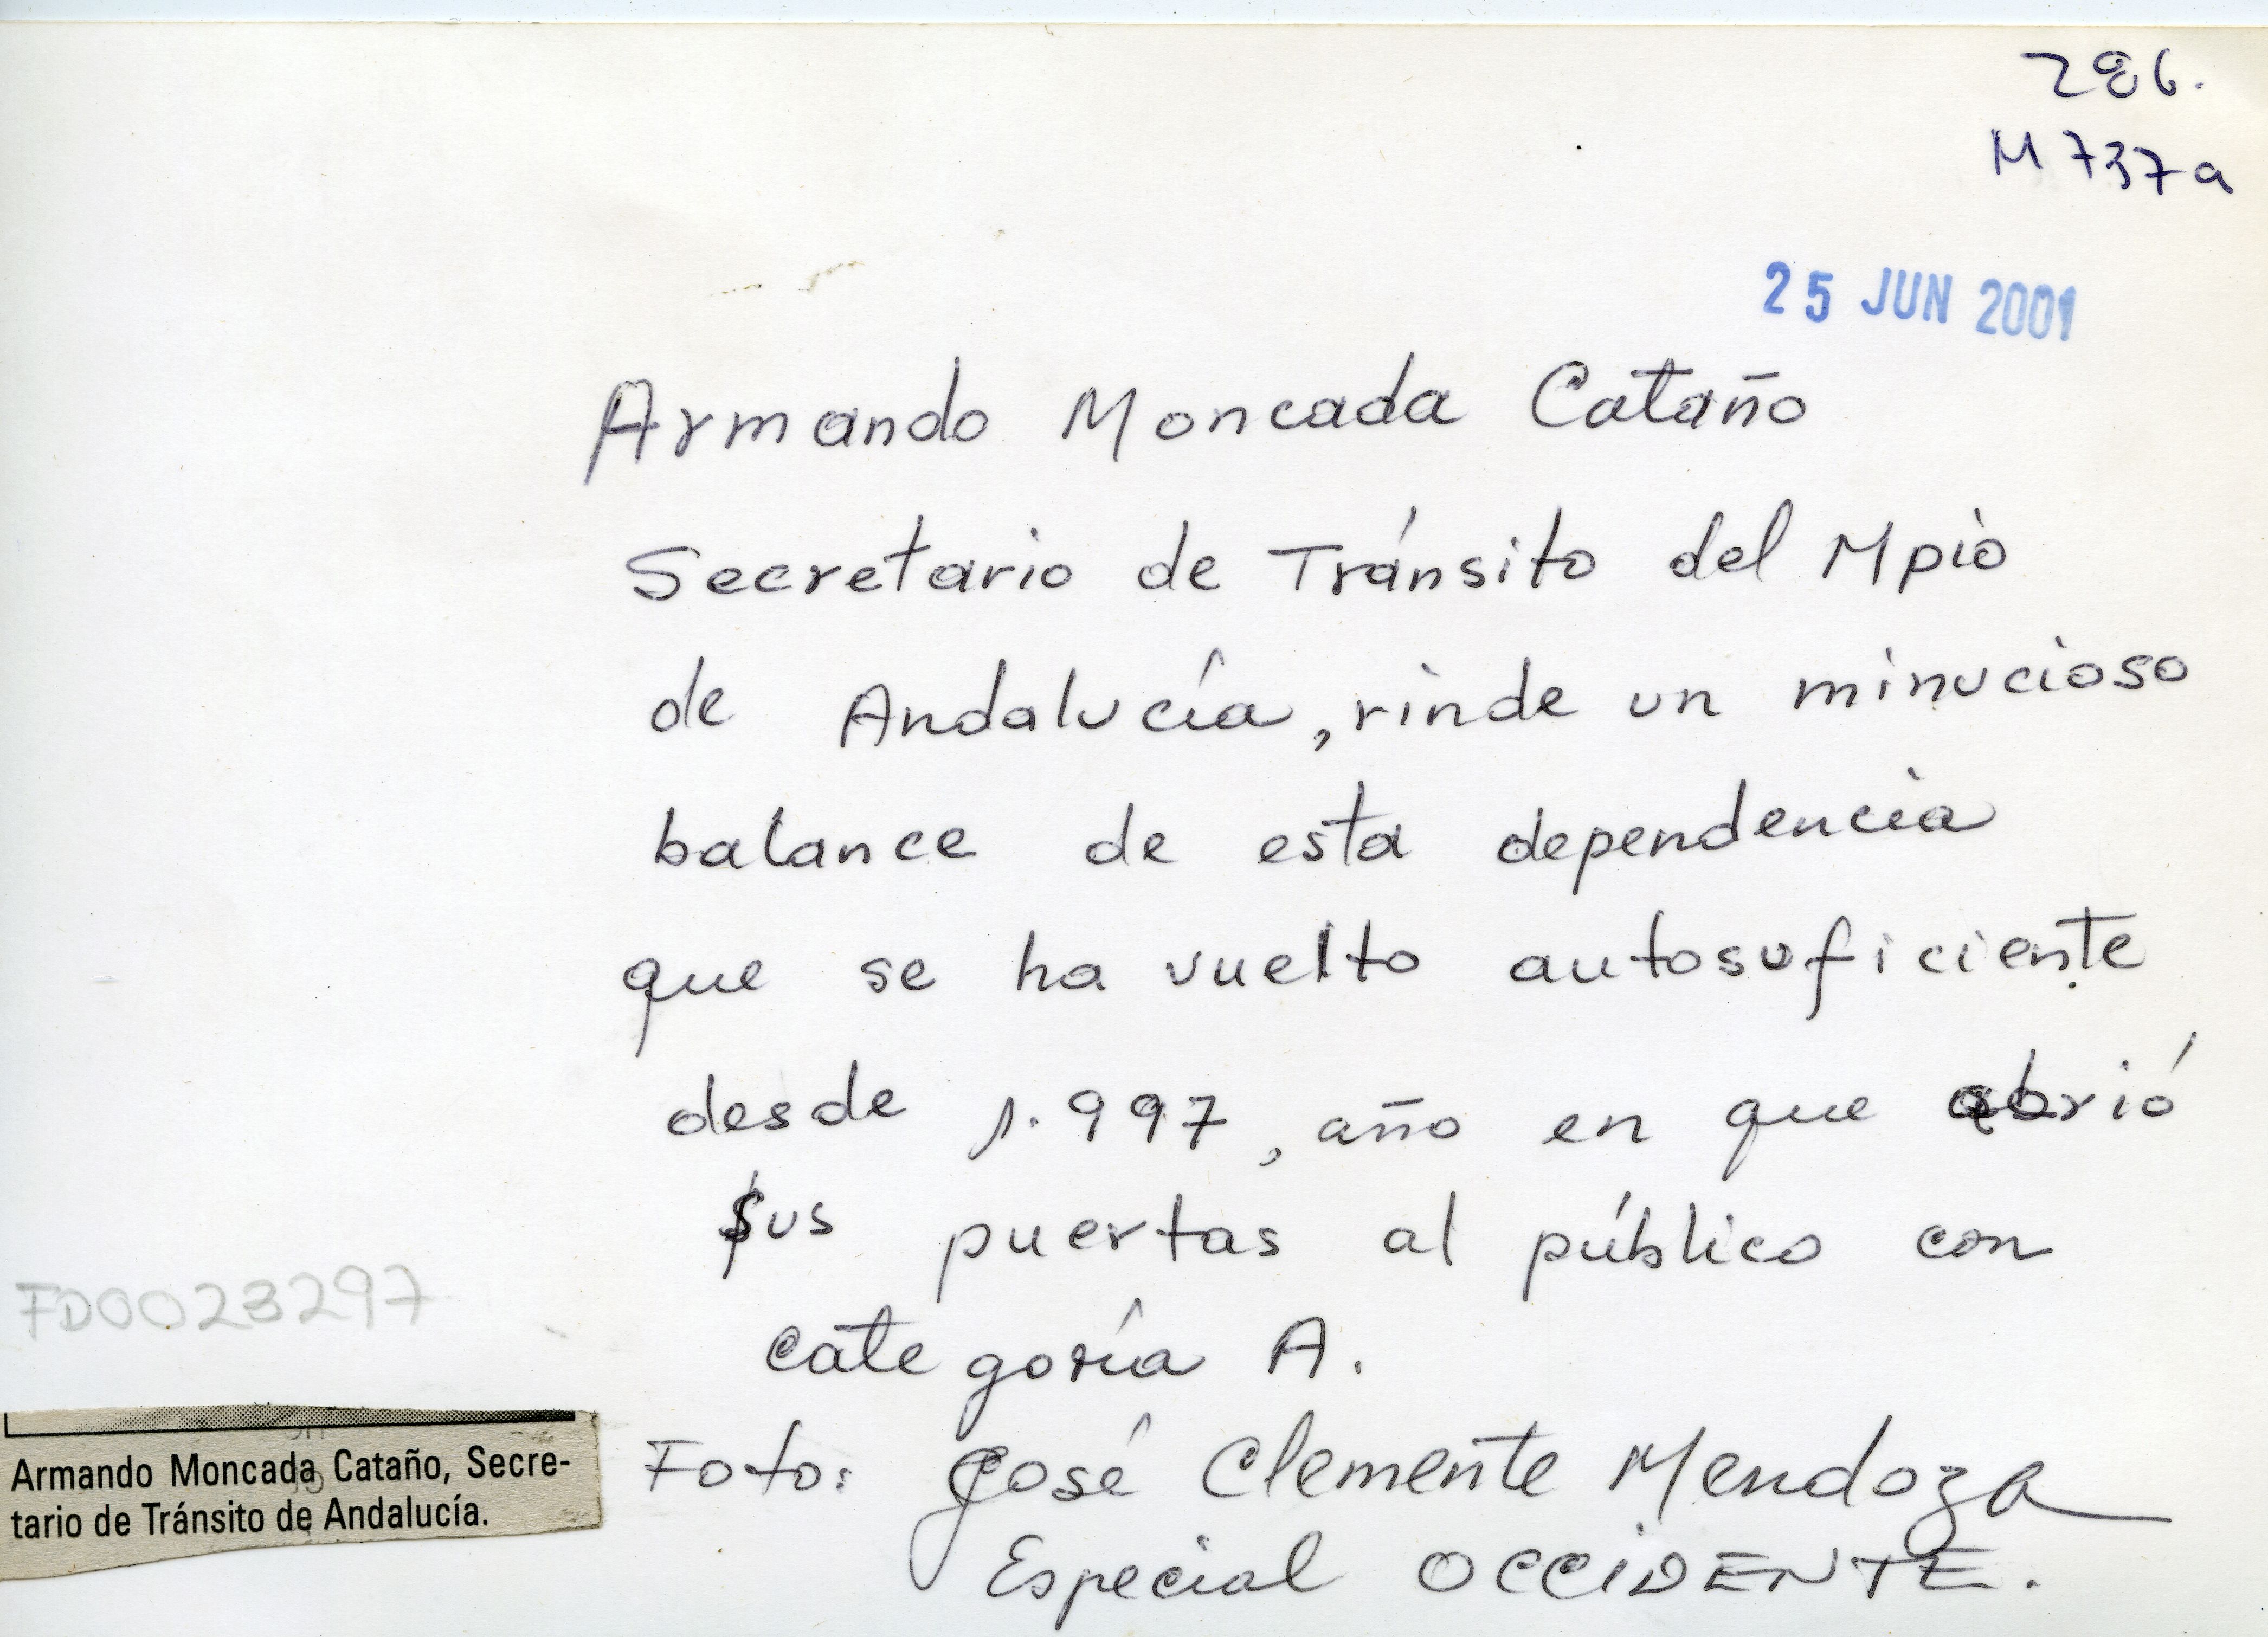 286.
M737a
25 JUN 2001
Armando Moncada Cataño
Secretario de Tránsito del Mpio
de Andalucía, rinde un minucioso
balance de esta dependencia
que se ha vuelto autosuficiente
desde 1.997, año en que abrió
sus puertas al público con
categoría A.
Foto: José Clemente Mendoza
Especial OCCIDENTE.
FD0023297
Armando Moncada Cataño, Secre-
tario de Tránsito de Andalucía.